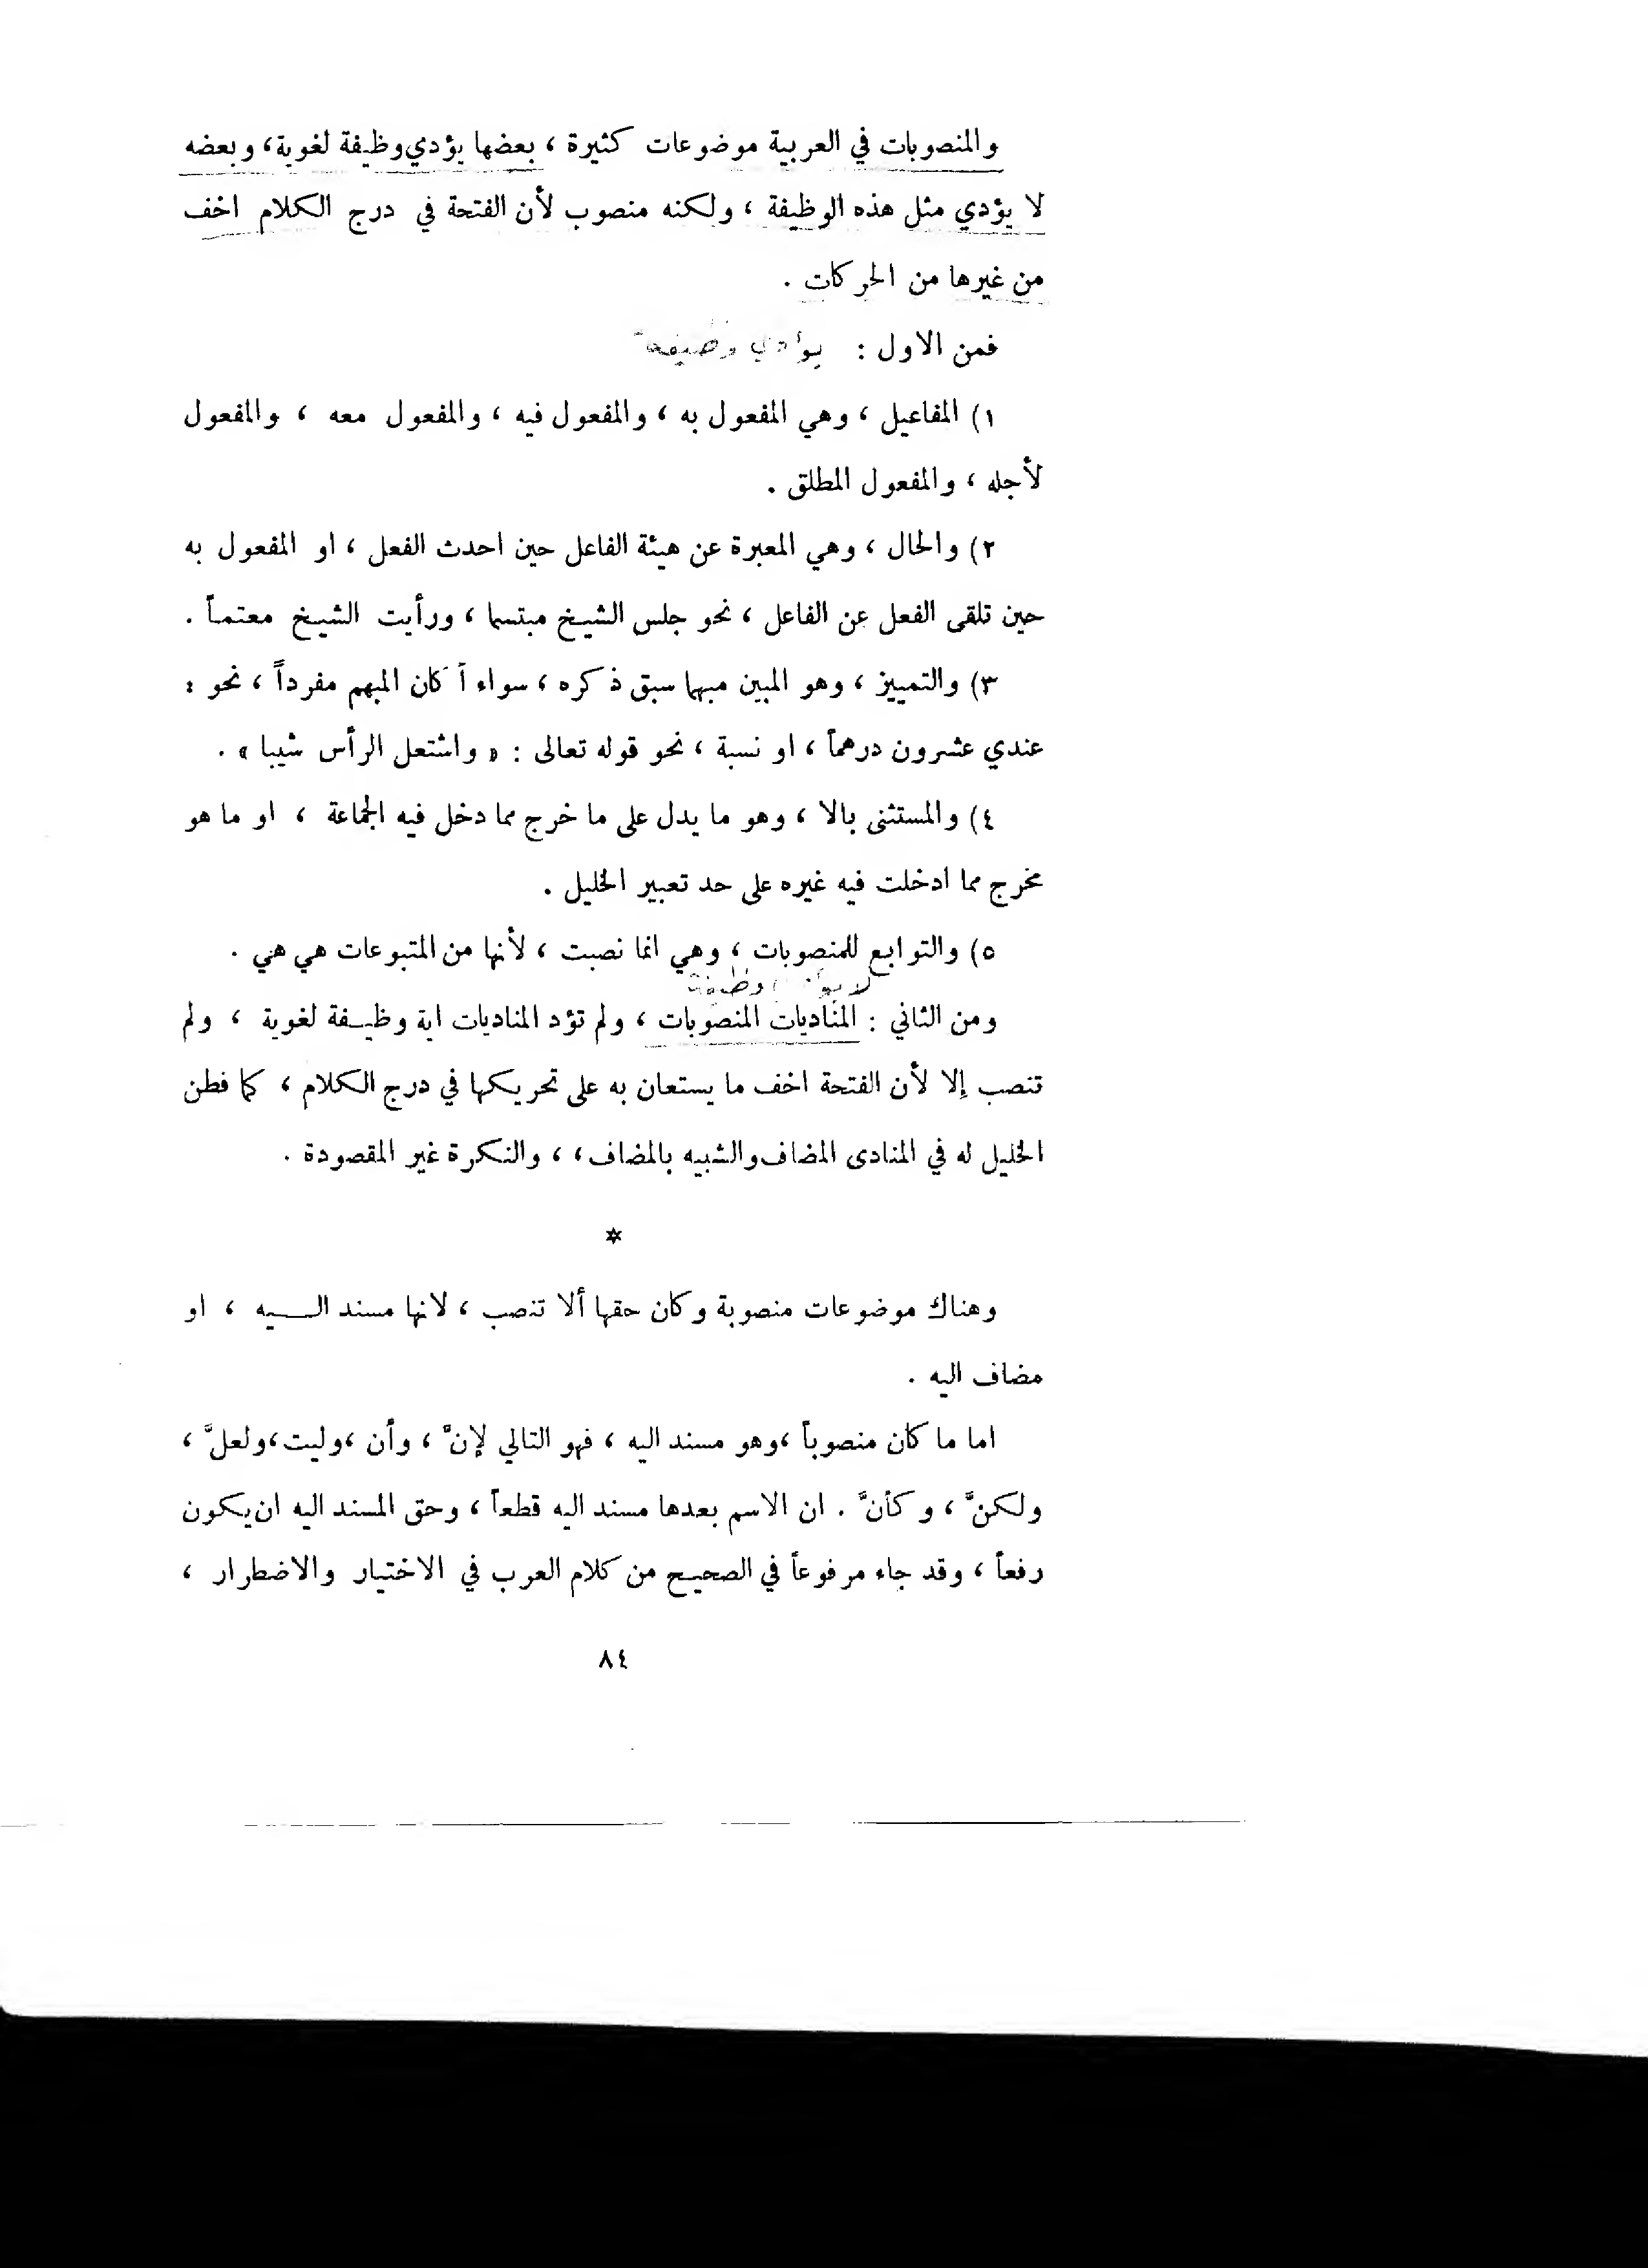 والمنصوبات في العربية موضوعات كثيرة ، بعضها يؤدي وظيفة لغوية، وبعضه
لا يؤدي مثل هذه الوظيفة ، ولكنه منصوب لأن الفتحة في درج الكلام اخف
من غيرها من الحركات .
فمن الاول : يؤدي وظيفة
١) المفاعيل ، وهي المفعول به ، والمفعول فيه ، والمفعول معه ، والمفعول
لأجله ، والمفعول المطلق .
٢) والحال ، وهي المعبرة عن هيئة الفاعل حين احدث الفعل ، او المفعول به
حين تلقى الفعل عن الفاعل ، نحو جلس الشيخ مبتسما ، ورأيت الشيخ معتمـاً .
٣) والتمييز ، وهو المبين مبهما سبق ذكره ، سواء أ كان المبهم مفرداً ، نحو :
عندي عشرون درهماً ، او نسبة ، نحو قوله تعالى : « واشتعل الرأس شيبا » .
٤) والمستثنى بالا ، وهو ما يدل على ما خرج مما دخل فيه الجماعة ، او ما هو
مخرج مما ادخلت فيه غيره على حد تعبير الخليل .
٥) والتوابع للمنصوبات ، وهي انما نصبت ، لأنها من المتبوعات هي هي .
لا يؤدي وظيفة
ومن الثاني : المناديات المنصوبات ، ولم تؤد المناديات اية وظيـفة لغوية ، ولم
تنصب إلا لأن الفتحة اخف ما يستعان به على تحريكها في درج الكلام ، كما فطن
الخليل له في المنادى المضاف والشبيه بالمضاف، ، والنكرة غير المقصودة .
*
وهناك موضوعات منصوبة وكان حقها ألا تنصب ، لانها مسند الـــيه ، او
مضاف اليه .
اما ما كان منصوباً ،وهو مسند اليه ، فهو التالي لإنّ ، وأن ،وليت،ولعلَّ ،
ولكنَّ ، وكأنَّ . ان الاسم بعدها مسند اليه قطعاً ، وحق المسند اليه ان يكون
رفعاً ، وقد جاء مرفوعاً في الصحيح من كلام العرب في الاختيار والاضطرار ،
٨٤